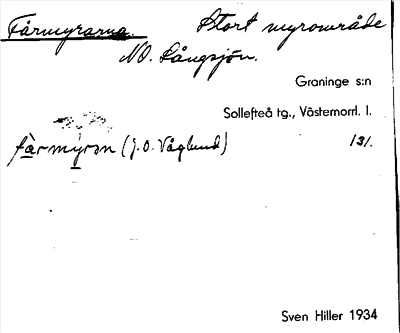 Fårmyrarna. Stort myrområde
NO. Långsjön.
Graninge s:n
Sollefteå tg., Västernorrl. l.
fàrmýrɔn (J.O. Våglund) 131.
Sven Hiller 1934